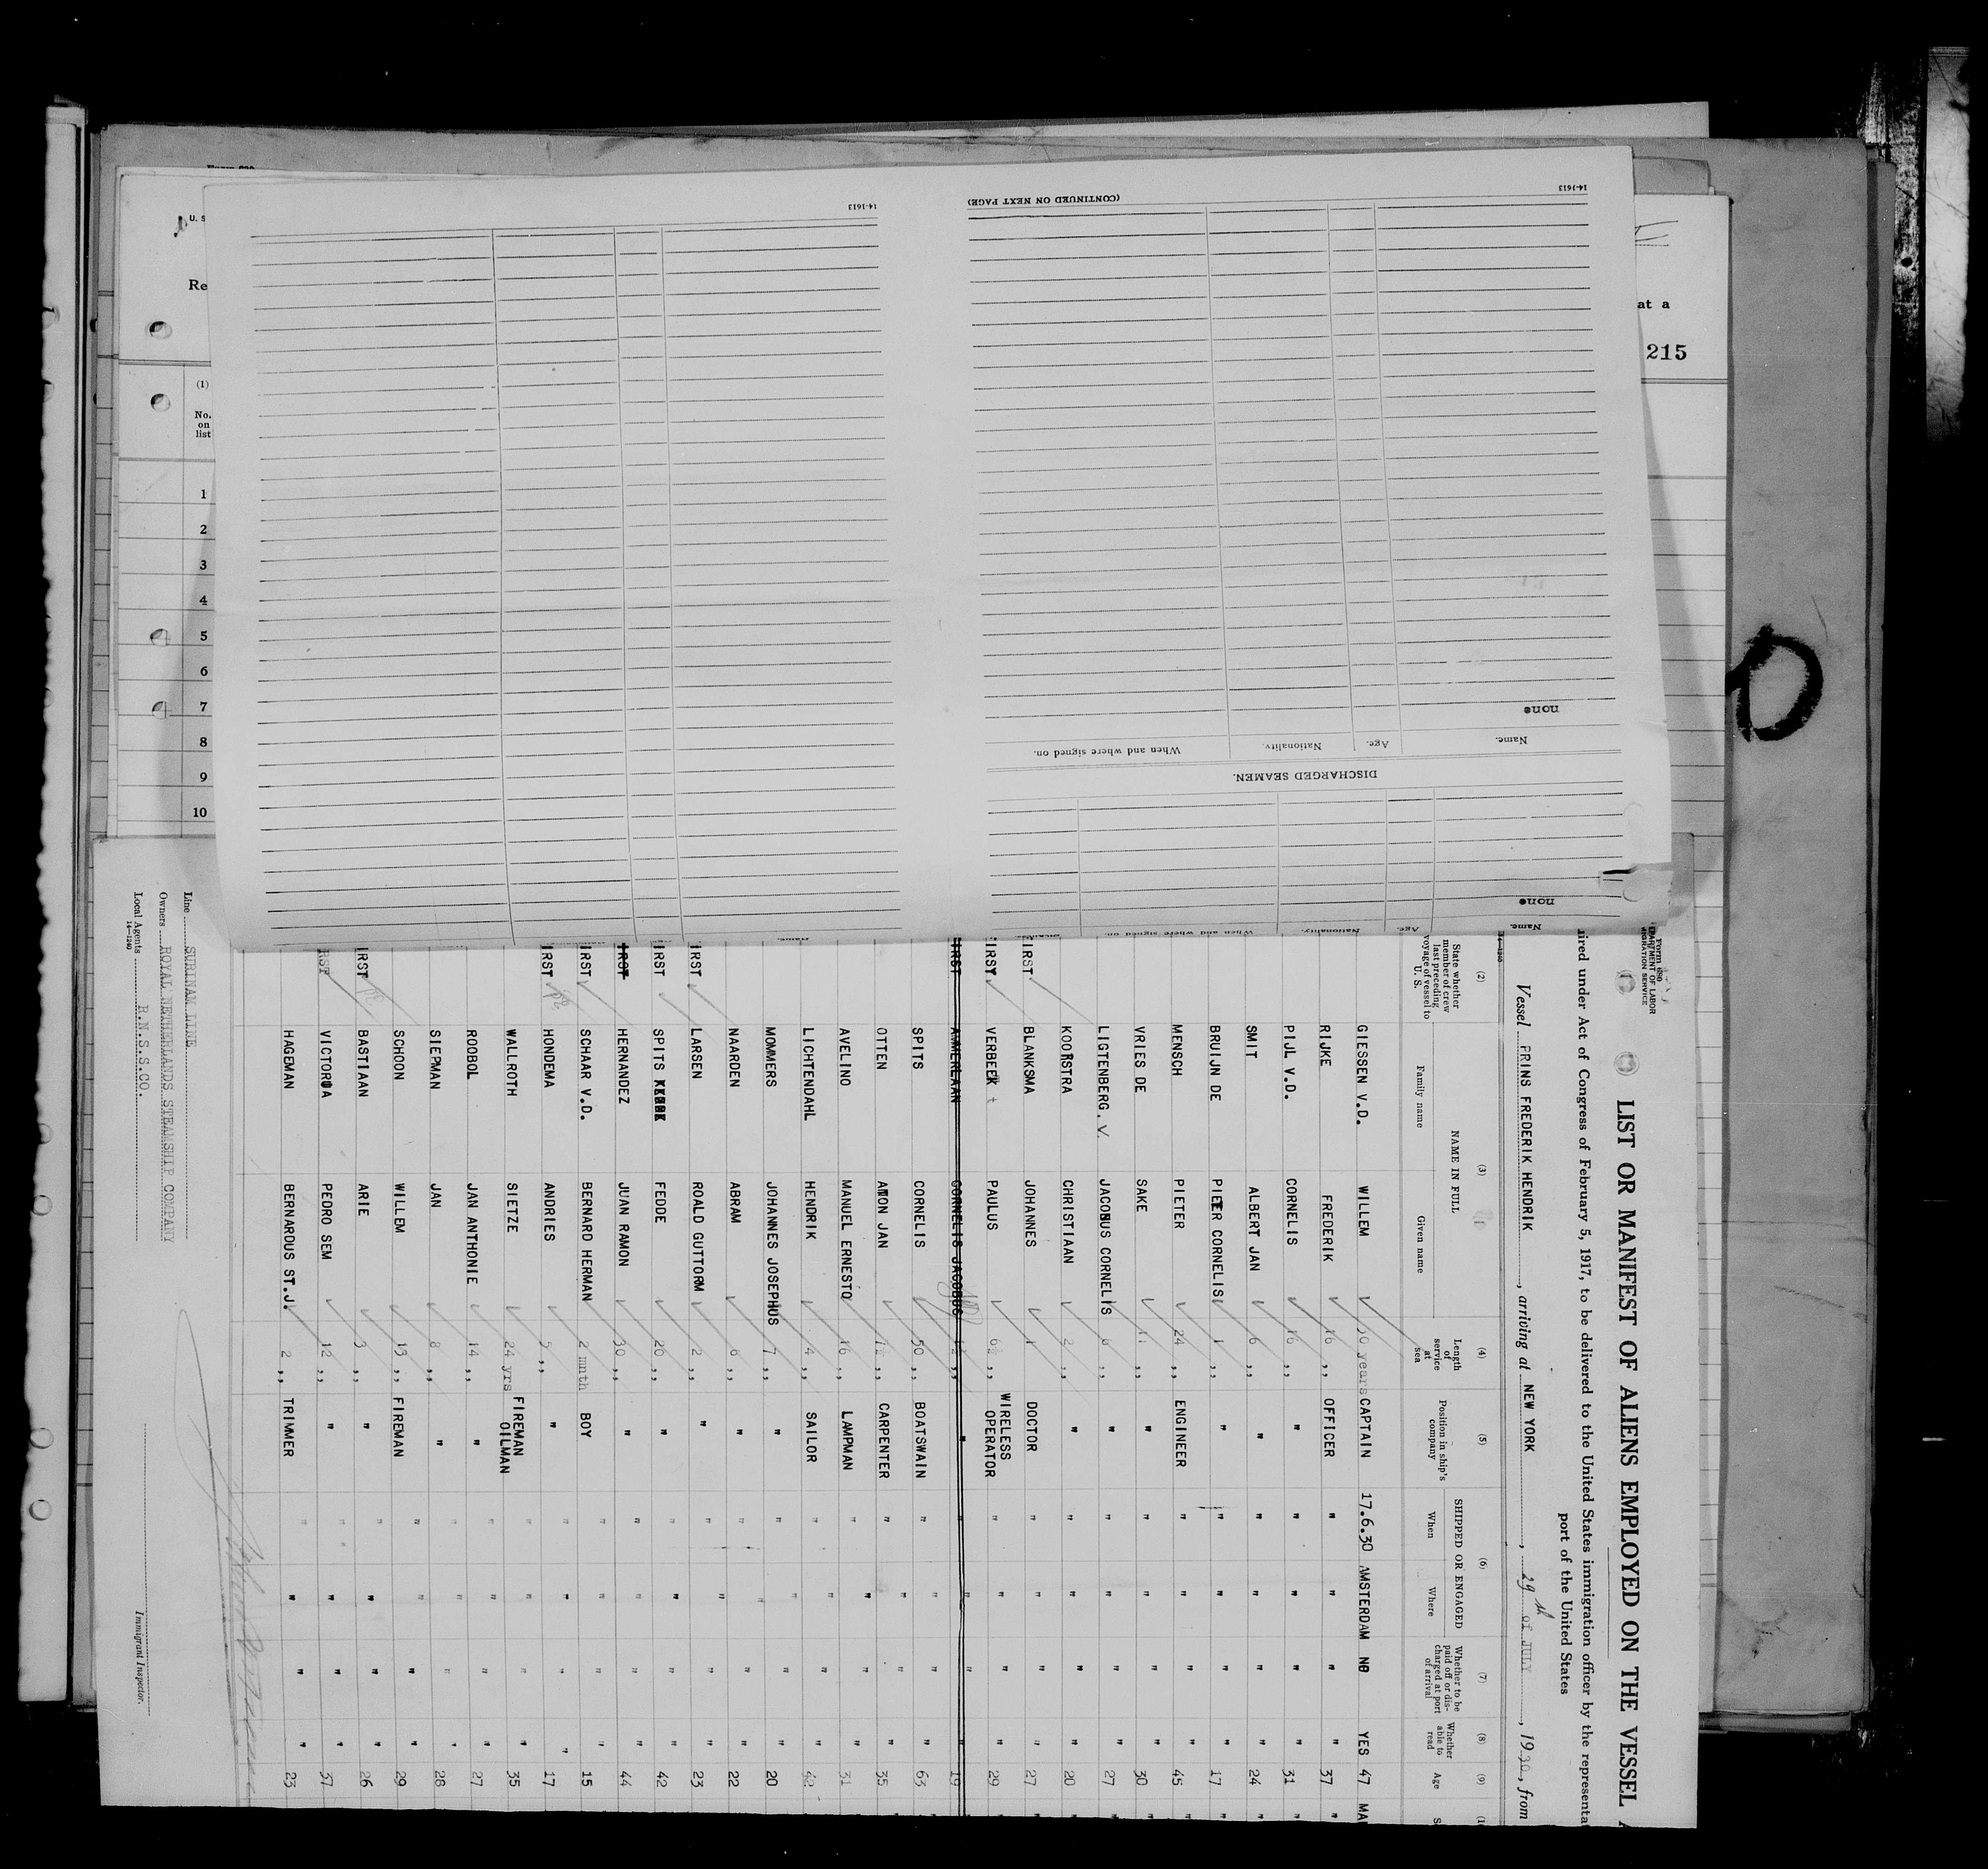 14-1613
(CONTINUED ON NEXT PAGE)
14-1613
Name. Age. Nationality. When and where signed on.
none
DISCHARGED SEAMEN.
none
Name. Age. Nationality. When and where signed on.
U. S
Re
at a
215
(1)
No. on list
1
2
3
4
5
6
7
8
9
10
Form 680
LIST OR MANIFEST OF ALIENS EMPLOYED ON THE VESSEL
ired under Act of Congress of February 5, 1917, to be delivered to the United States immigration officer by the representa
port of the United States
Vessel PRINS FREDERIK HENDRIK, arriving at NEW YORK, 29th of JULY, 1930, from
(2) (3) (4) (5) (6) (7) (8) (9)
State whether member of crew last preceding voyage of vessel to U. S. NAME IN FULL Family name Given name Length of service at sea Position in ship's company SHIPPED OR ENGAGED When Where Whether to be paid off or discharged at port of arrival Whether able to read Age
GIESSEN V.D. WILLEM years CAPTAIN 17.6.30 AMSTERDAM NO YES 47
RIJKE FREDERIK 16 ,, OFFICER " " " " 37
PIJL V.D. CORNELIS 16 ,, " " " " " 31
SMIT ALBERT JAN 6 ,, " " " " " 24
BRUIJN DE PIETER CORNELIS 1 ,, " " " " " 17
MENSCH PIETER 24 ,, ENGINEER " " " " 45
VRIES DE SAKE 11 ,, " " " " " 30
LIGTENBERG. V. JACOBUS CORNELIS ,, " " " " " 27
KOORSTRA CHRISTIAAN 2 ,, " " " " " 20
IRST BLANKSMA JOHANNES 1 ,, DOCTOR " " " " 27
FIRST VERBEEK PAULUS 6½ ,, WIRELESS OPERATOR " " " " 29
FIRST AMMERLAAN CORNELIS JACOBUS ,, " " " " " 19
SPITS CORNELIS 50 ,, BOATSWAIN " " " " 63
OTTEN ANTON JAN ,, CARPENTER " " " " 35
AVELINO MANUEL ERNESTO 16 ,, LAMPMAN " " " " 31
LICHTENDAHL HENDRIK 4 ,, SAILOR " " " " 42
MOMMERS JOHANNES JOSEPHUS 7 ,, " " " " " 20
NAARDEN ABRAM 6 ,, " " " " 22
IRST LARSEN ROALD GUTTORM 2 ,, " " " " " 23
IRST SPITS FEDDE 20 ,, " " " " " 42
IRST HERNANDEZ JUAN RAMON 30 ,, " " " " " 44
IRST SCHAAR V.D. BERNARD HERMAN 2 mnth BOY " " " " 15
IRST HONDEMA ANDRIES 5 ,, " " " " " 17
WALLROTH SIETZE 24 yrs FIREMAN OILMAN " " " " 35
ROOBOL JAN ANTHONIE 14 ,, " " " " " 27
SIEPMAN JAN 8 ,, " " " " " 28
SCHOON WILLEM 13 ,, FIREMAN " " " " 29
IRST BASTIAAN ARIE 3 ,, " " " " " 26
IRST VICTORIA PEDRO SEM 12 ,, " " " " " 37
HAGEMAN BERNARDUS ST.J. 2 ,, TRIMMER " " " " 23
Line SURINAM LINE
Owners ROYAL NETHERLANDS STEAMSHIP COMPANY
Local Agents R.N.S.S.CO.
14-1240
Immigrant Inspector.